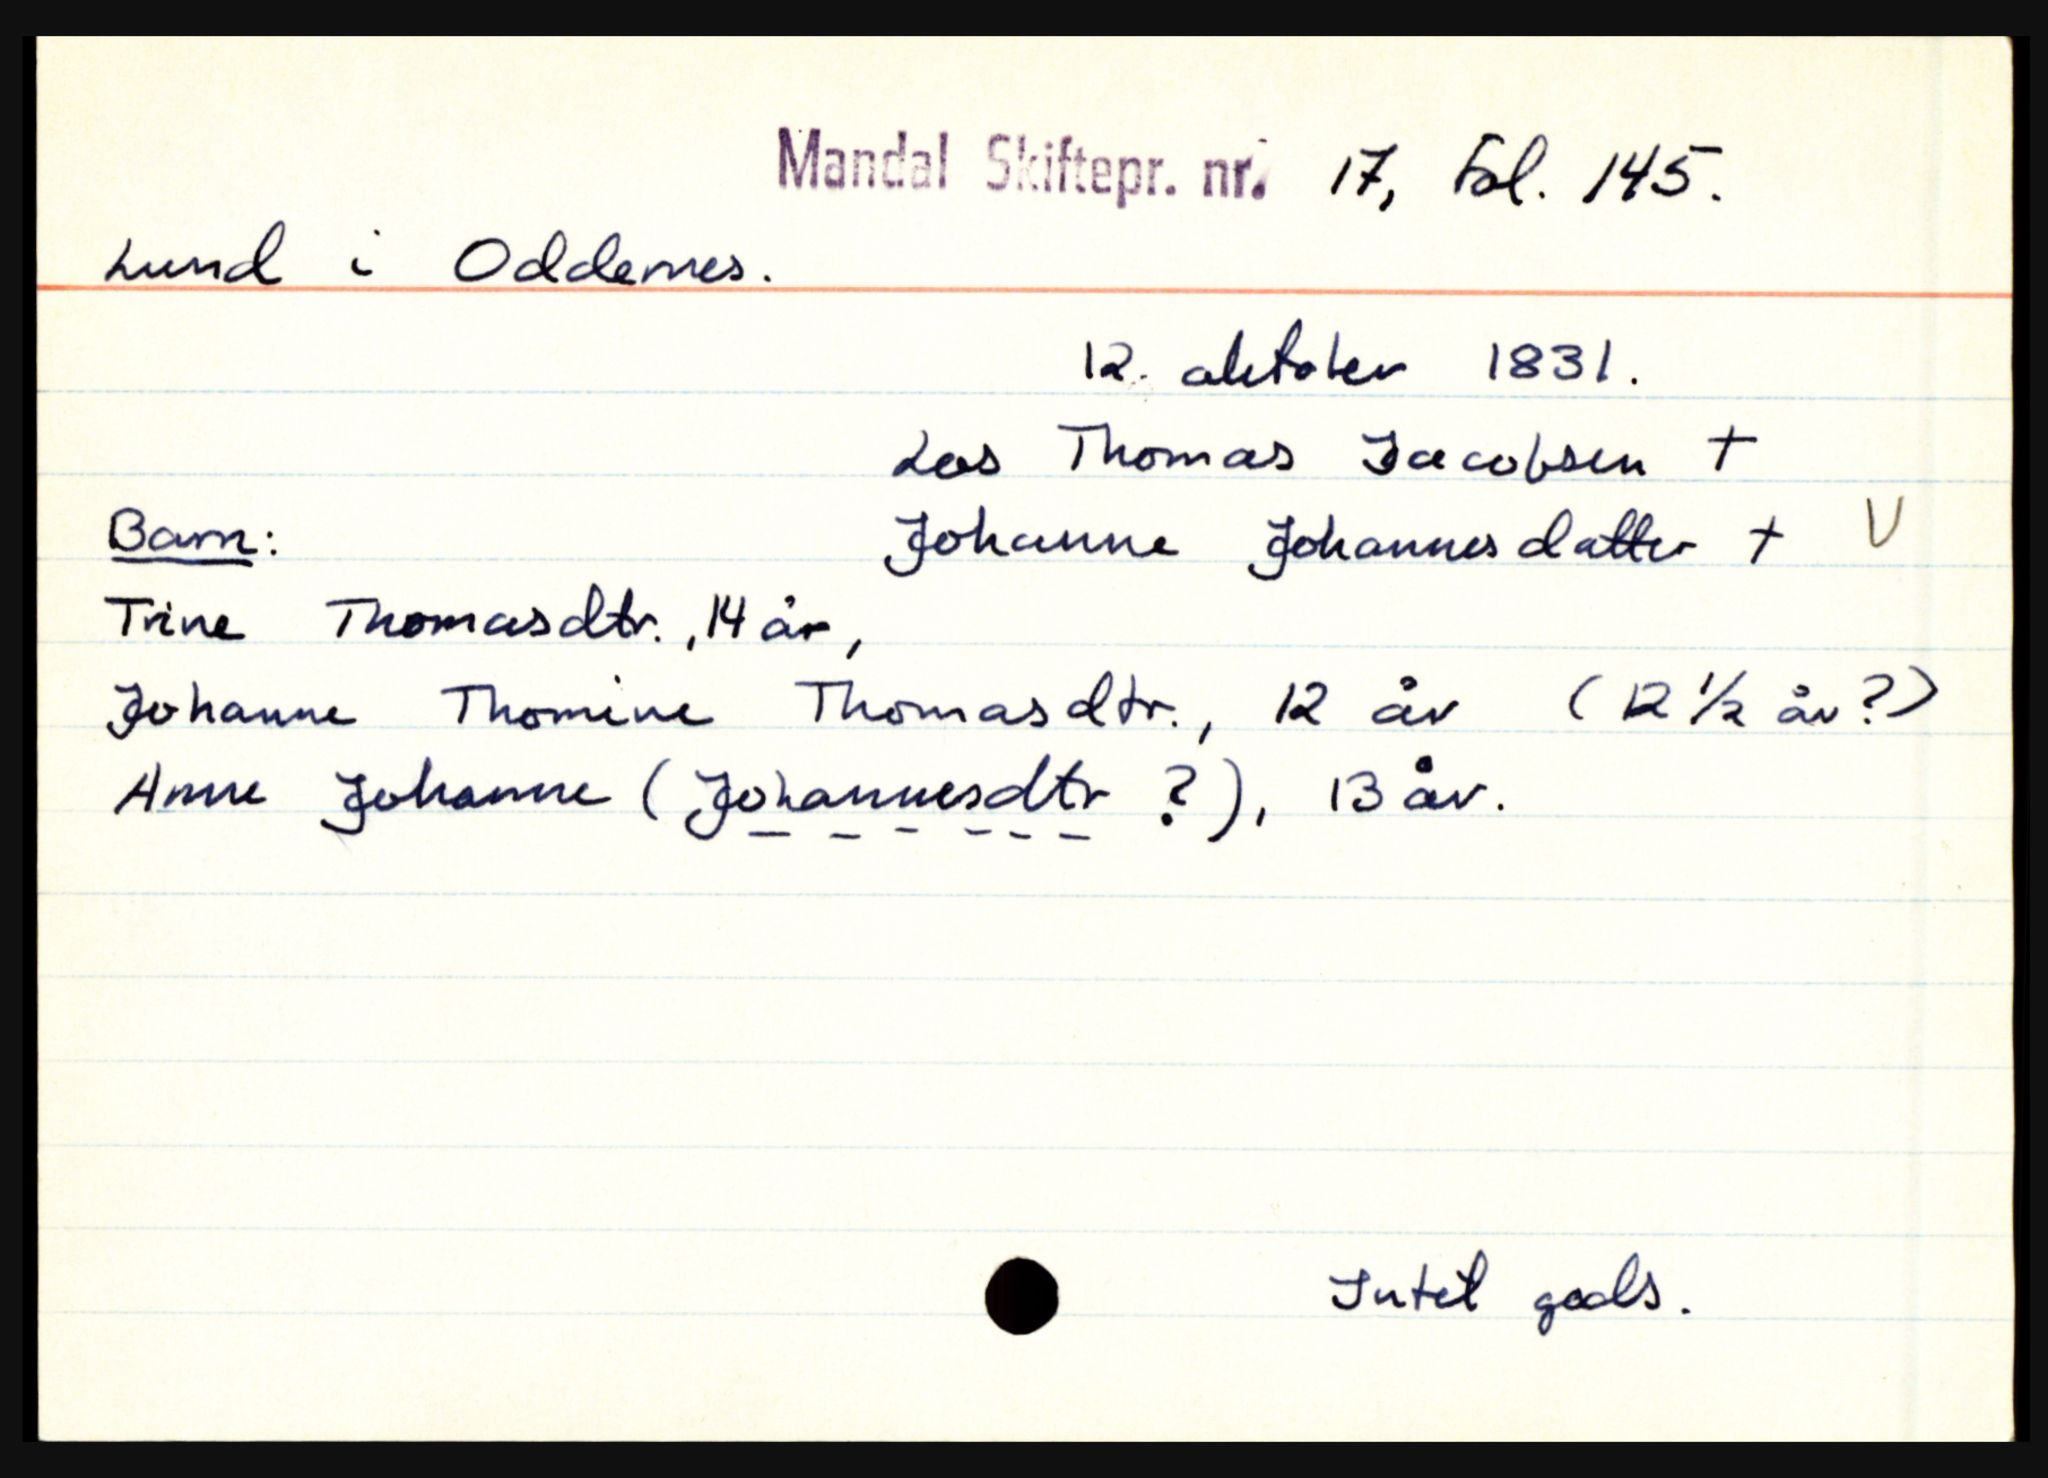 Mandal Skiftepr. nr. 17, fol. 145.
Lund i Oddernes.
12. oktober 1831.
Los Thomas Jacobsen †
Barn: Johanne Johannesdatter † V
Trine Thomasdtr., 14 år,
Johanne Thomine Thomasdtr., 12 år (12 1/2 år?)
Anne Johanne (Johannesdtr ?), 13 år.
Intet gods.